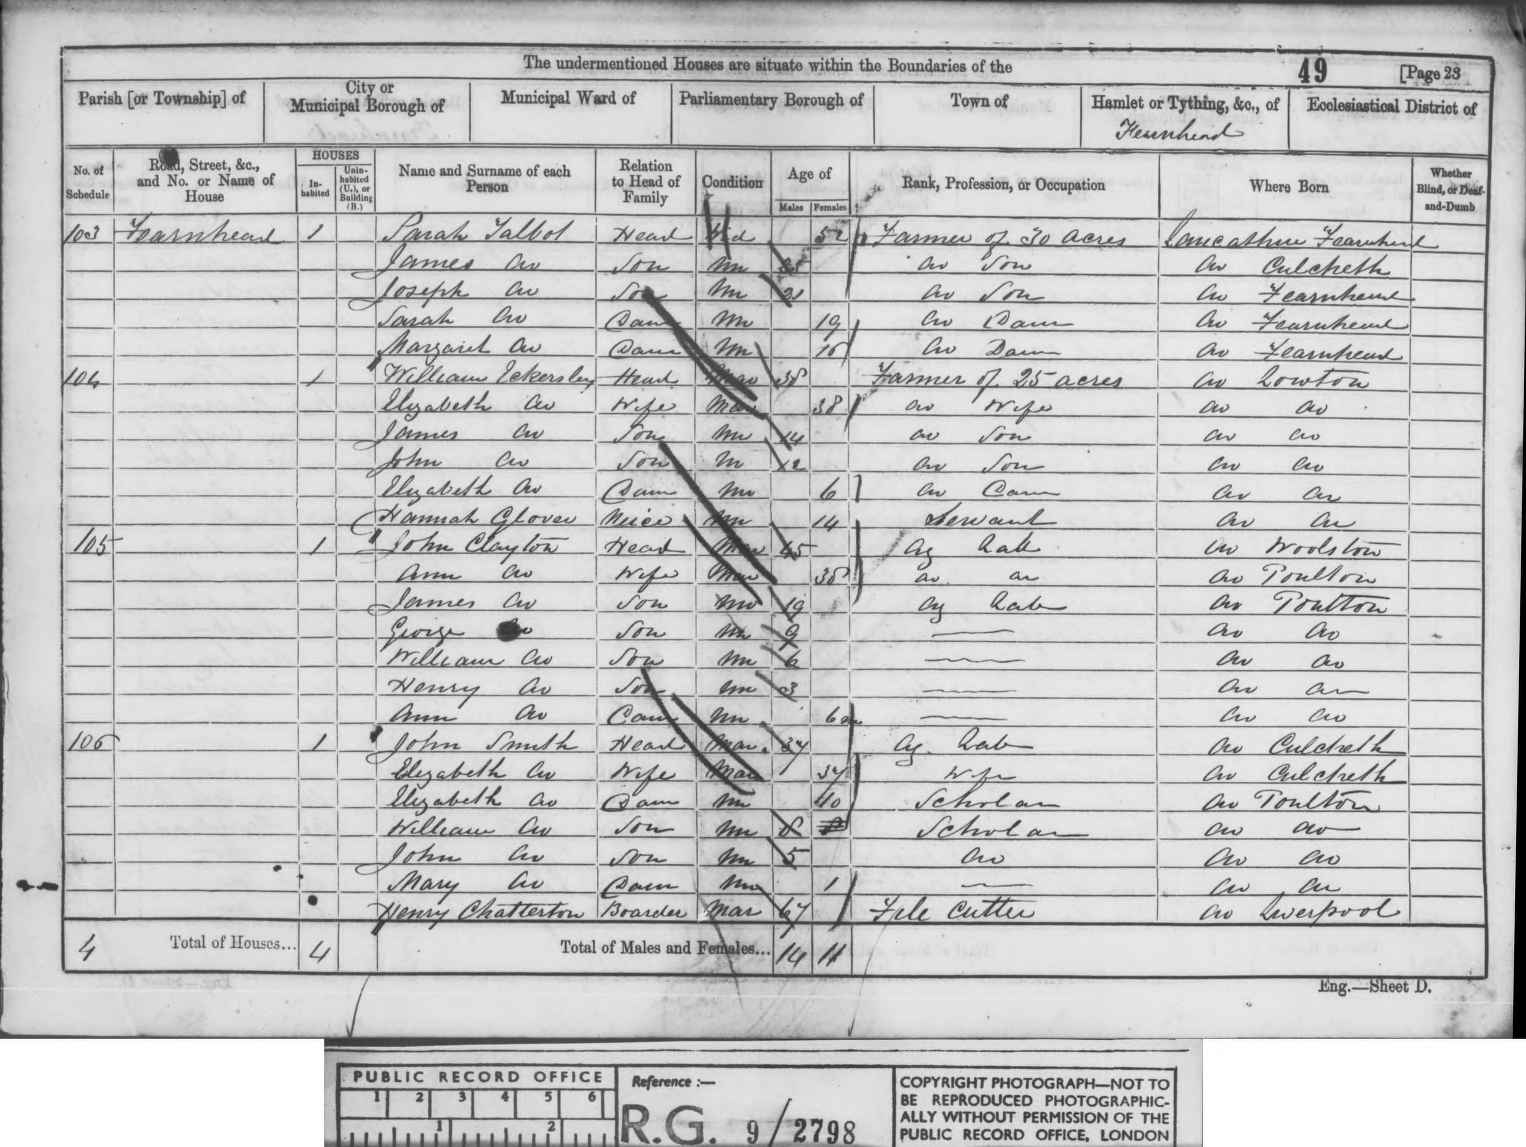 The undermentioned Houses are situate within the Boundaries of the 49 [Page 23
Parish [or Township] of City or Municipal Borough of Municipal Ward of Parliamentary Borough of Town of Hamlet or Tything, &c., of Ecclesiastical District of
Fearnhead
No. of Schedule Road, Street, &c., and No. or Name of House HOUSES Inhabited Uninhabited (U.), or Building (B.) Name and Surname of each Person Relation to Head of Family Condition Age of Males Females Rank, Profession, or Occupation Where Born Whether Blind, or Deaf-and-Dumb
103 Fearnhead 1 Sarah Talbot Head 52 Farmer of 30 acres Lancashire Fearnhead
James do Son Un do Son do Culcheth
Joseph do Son Un 21 do Son do Fearnhead
Sarah do Daur Un 19 do Daur do Fearnhead
Margaret do Daur Un 16 do Daur do Fearnhead
104 1 William Eckersley Head Mar 38 Farmer of 25 acres do Lowton
Elizabeth do Wife Mar 38 do Wife do do
James do Son Un 14 do Son do do
John do Son Un 12 do Son do do
Elizabeth do Daur Un 6 do Daur do do
Hannah Glover Neice Un 14 Servant do do
105 1 John Clayton Head Mar 45 Ag Lab do Woolston
Ann do Wife Mar 38 do do do Poulton
James do Son Un 19 Ag Lab do Poulton
George do Son Un 9 — do do
William do Son Un 6 — do do
Henry do Son Un 3 — do do
Ann do Daur Un 6 m — do do
106 1 John Smith Head Mar. 37 Ag. Lab do Culcheth
Elizabeth do Wife Mar 37 Wife do Culcheth
Elizabeth do Daur Un 10 Scholar do Poulton
William do Son Un 8 Scholar do do
John do Son Un 5 do do do
Mary do Daur Un 1 — do do
Henry Chatterton Boarder Mar 67 File Cutter do Liverpool
4 Total of Houses... 4 Total of Males and Females... 14 11
Eng.—Sheet D.
PUBLIC RECORD OFFICE
1 2 3 4 5 6
1 2
Reference :—
R.G. 9/2798
COPYRIGHT PHOTOGRAPH—NOT TO
BE REPRODUCED PHOTOGRAPHIC-
ALLY WITHOUT PERMISSION OF THE
PUBLIC RECORD OFFICE, LONDON